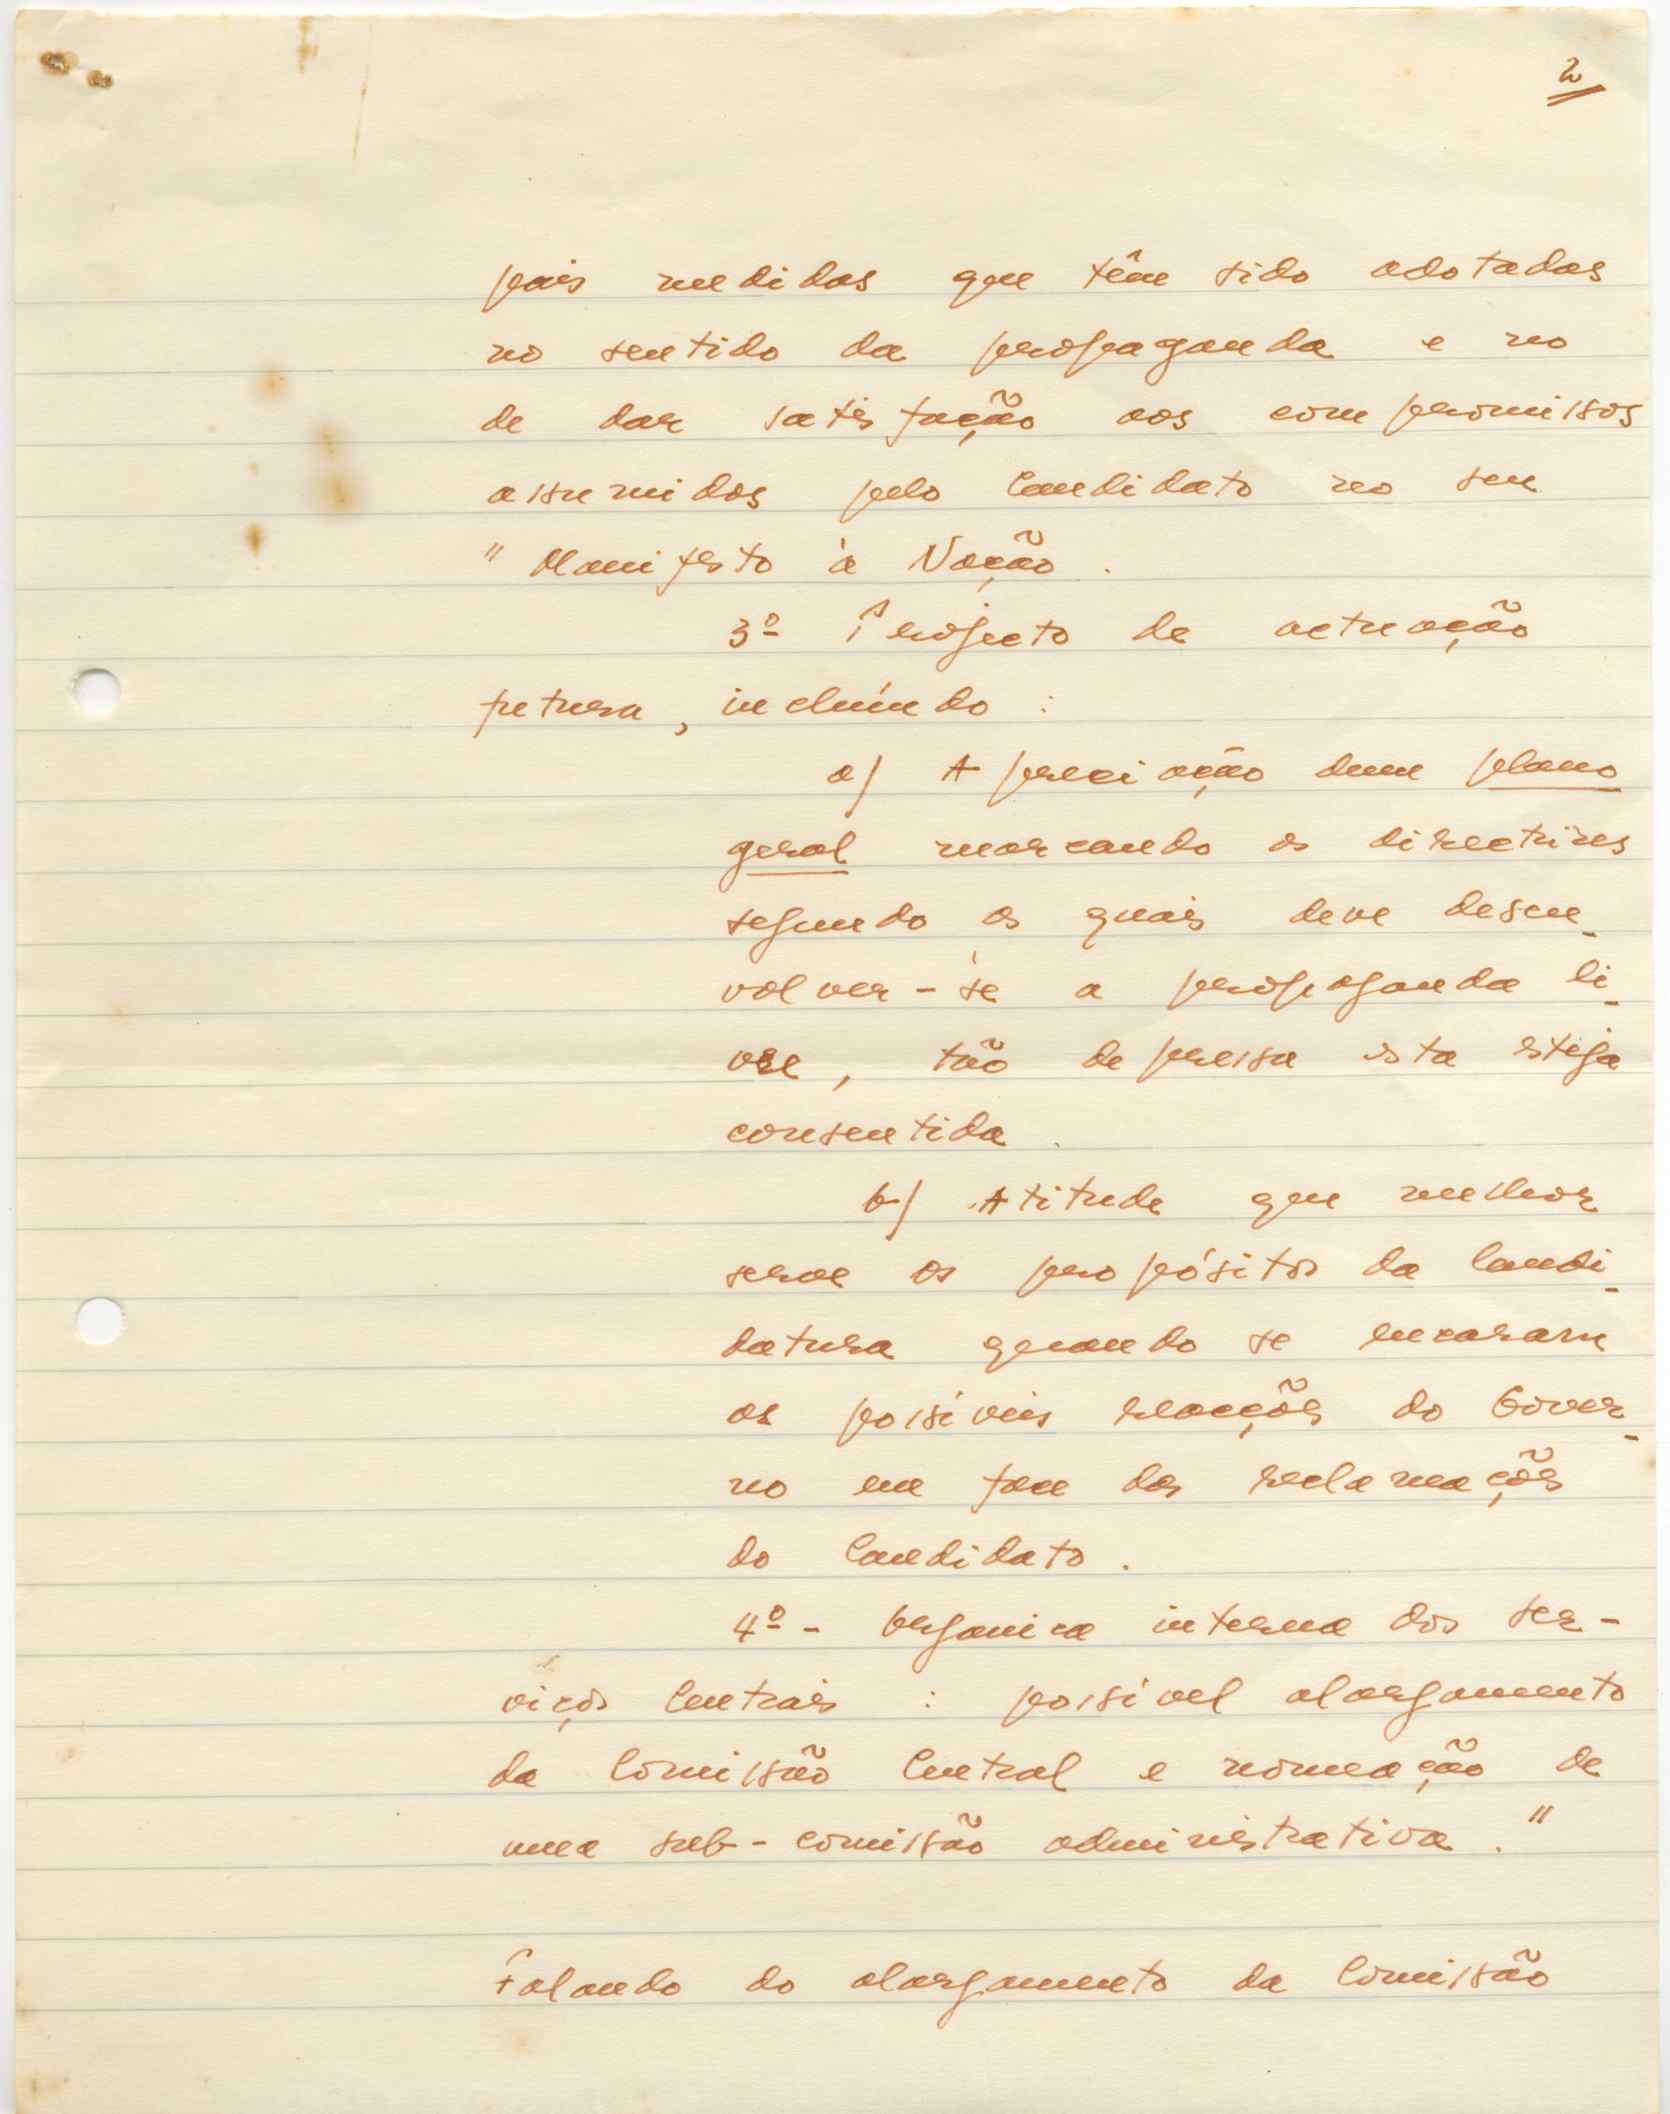 2
pais medidas que têm sido adotadas
no sentido da propaganda e no
de dar satisfação aos compromissos
assumidos pelo Candidato no seu
" Manifesto à Nação .
3º Projecto de actuação
futura, incluíndo :
a) Apreciação dum plano
geral marcando as directrizes
segundo as quais deve desen-
volver-se a propaganda li-
vre, tão depressa esta esteja
consentida.
b) Atitude que melhor
serve os propósitos da Candi-
datura quando se encararam
as possíveis reacções do Gover-
no em face das reclamações
do Candidato.
4º - Organica interna dos ser-
viços Centrais : possível alargamento
da Comissão Central e nomeação de
uma sub-comissão administrativa."
Falando do alargamento da Comissão